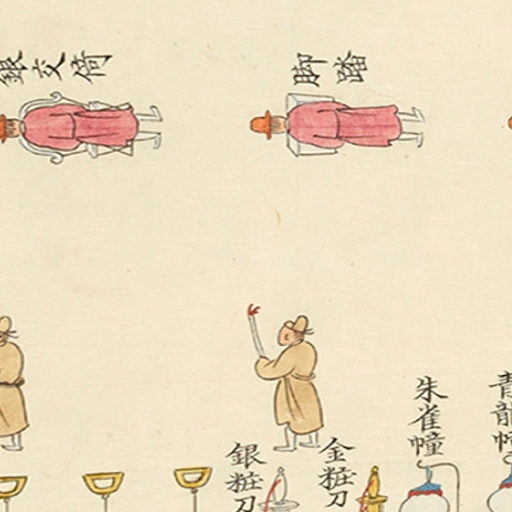 銀交倚
脚踏
朱雀幢
青龍幢
銀粧刀
金粧刀